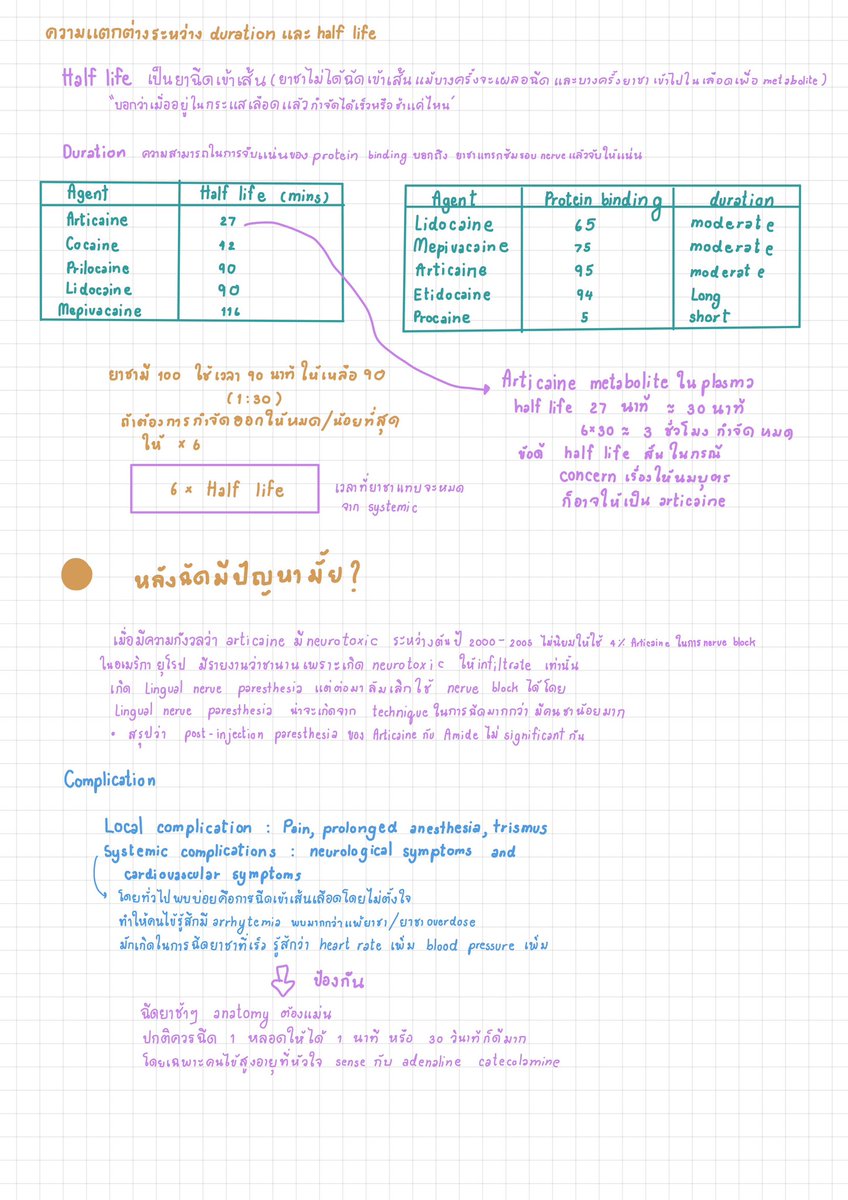 ความแตกต่างระหว่าง duration และ half life
Half life เป็นยาฉีดเข้าเส้น (ยาชาไม่ได้ฉีดเข้าเส้น แม้บางครั้งจะเผลอฉีด และบางครั้งยาชาเข้าไปในเลือดเพื่อ metabolite)
"บอกว่าเมื่ออยู่ในกระแสเลือดแล้วกำจัดได้เร็วหรือช้าแค่ไหน"
Duration ความสามารถในการจับแน่นของ protein binding บอกถึง ยาชาแทรกซึมรอบ nerve แล้วจับให้แน่น
Agent Half life (mins)
Articaine 27
Cocaine 42
Prilocaine 90
Lidocaine 90
Mepivacaine 116
Agent Protein binding duration
Lidocaine 65 moderate
Mepivacaine 75 moderate
Articaine 95 moderate
Etidocaine 94 Long
Procaine 5 short
ยาชามี 100 ใช้เวลา 90 นาที ให้เหลือ 90
(1:30)
ถ้าต้องการกำจัดออกให้หมด/น้อยที่สุด
ให้ × 6
6 × Half life
เวลาที่ยาชาแทบจะหมด
จาก systemic
Articaine metabolite ใน plasma
half life 27 นาที ≈ 30 นาที
6×30 ≈ 3 ชั่วโมง กำจัดหมด
ข้อดี half life สั้น ในกรณี
concern เรื่องให้นมบุตร
ก็อาจให้เป็น articaine
หลังฉีดมีปัญหามั้ย?
เมื่อมีความกังวลว่า articaine มี neurotoxic ระหว่างต้นปี 2000-2005 ไม่นิยมให้ใช้ 4% Articaine ในการ nerve block
ในอเมริกา ยุโรป มีรายงานว่าชานานเพราะเกิด neurotoxic ให้ infiltrate เท่านั้น
เกิด Lingual nerve paresthesia แต่ต่อมาล้มเลิกใช้ nerve block ได้โดย
Lingual nerve paresthesia น่าจะเกิดจาก technique ในการฉีดมากกว่า มีคนชาน้อยมาก
• สรุปว่า post-injection paresthesia ของ Articaine กับ Amide ไม่ significant กัน
Complication
Local complication : Pain, prolonged anesthesia, trismus
Systemic complications : neurological symptoms and
cardiovascular symptoms
โดยทั่วไปพบบ่อยคือการฉีดเข้าเส้นเลือดโดยไม่ตั้งใจ
ทำให้คนไข้รู้สึกมี arrhytemia พบมากกว่าแพ้ยาชา/ยาชา overdose
มักเกิดในการฉีดยาชาที่เร็ว รู้สึกว่า heart rate เพิ่ม blood pressure เพิ่ม
ป้องกัน
ฉีดยาช้าๆ anatomy ต้องแม่น
ปกติควรฉีด 1 หลอดให้ได้ 1 นาที หรือ 30 วินาทีก็ดีมาก
โดยเฉพาะคนไข้สูงอายุที่หัวใจ sense กับ adenaline catecolamine